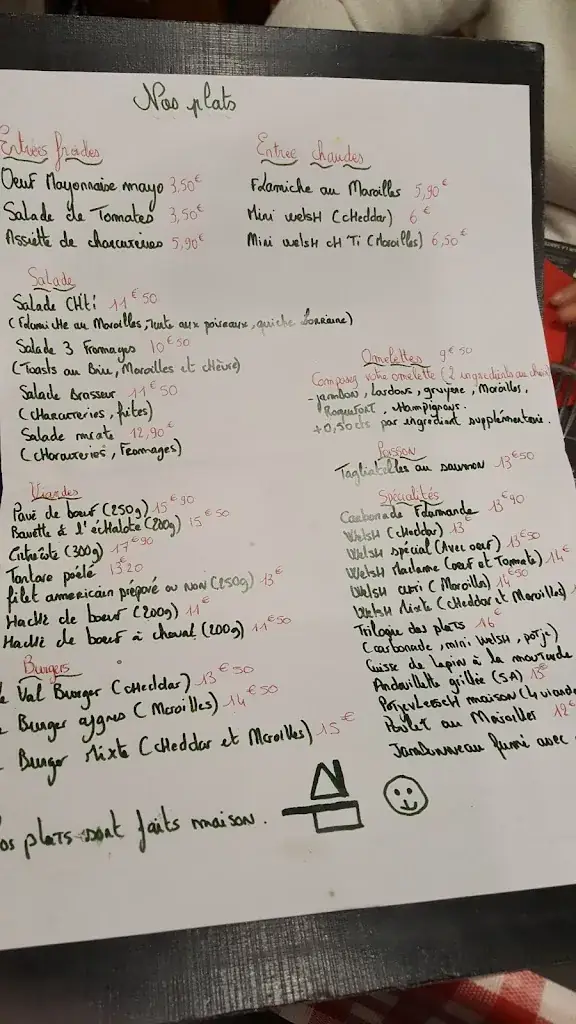 Nos plats
Entrées froides
Oeuf Mayonnaise mayo 3,50€
Salade de Tomates 3,50€
Assiette de charcuteries 5,90€
Entree chaudes
Flamiche au Maroilles 5,90€
Mini welsh (cheddar) 6€
Mini welsh ch'Ti (Maroilles) 6,50€
Salade
Salade Ch'ti 11€50
(Flamiche au Maroilles, Tarte aux poireaux, quiche Lorraine)
Salade 3 Fromages 10€50
(Toasts au Brie, Maroilles et chèvre)
Salade Brasseur 11€50
(charcuteries, frites)
Salade mixte 12,90€
(charcuteries, Fromages)
Omelettes 9€50
Composez votre omelette (2 ingredients au choix
- jambon, lardons, gruyère, Maroilles,
Roquefort, champignons.
+0,50cts par ingredient supplémentaire.
Poisson
Tagliatelles au saumon 13€50
Viandes
Pavé de boeuf (250g) 15€90
Bavette à l'échalote (200g) 15€50
Entrecôte (300g) 17€90
Tartare poêlé 13€20
filet americain préparé ou non (250g) 13€
Haché de boeuf (200g) 11€
Haché de boeuf à cheval (200g) 11€50
Spécialités
Carbonade Flamande 13€90
Welsh (cheddar) 13€
Welsh spécial (Avec oeuf) 13€50
Welsh Madame (oeuf et Tomate) 14€
Welsh (Maroilles) 14€50
Welsh Mixte (cheddar et Maroilles)
Trilogie des plats 16€
(carbonade, mini welsh, potje)
Cuisse de lapin à la moutarde
Andouillette grillée (5A) 15€
Potjevleesch maison (4 viandes
Poulet au Maroilles 12€
Jambonneau fumé avec
Burgers
Val Burger (cheddar) 13€50
Burger (Maroilles) 14€50
Burger Mixte (cheddar et Maroilles) 15€
os plats sont faits maison.